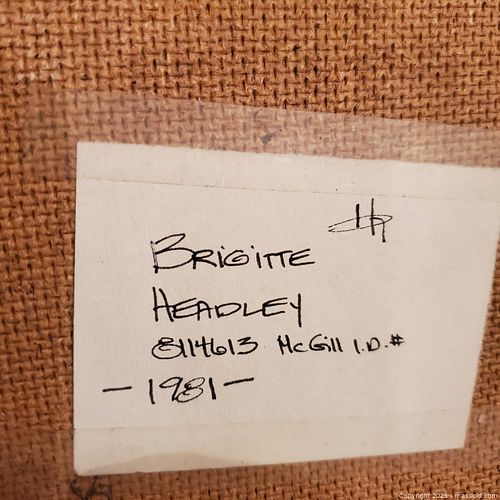 BRIGITTE
HEADLEY
8114613 McGill I.D.#
- 1981 -
Copyright 2025 - maxsold.com